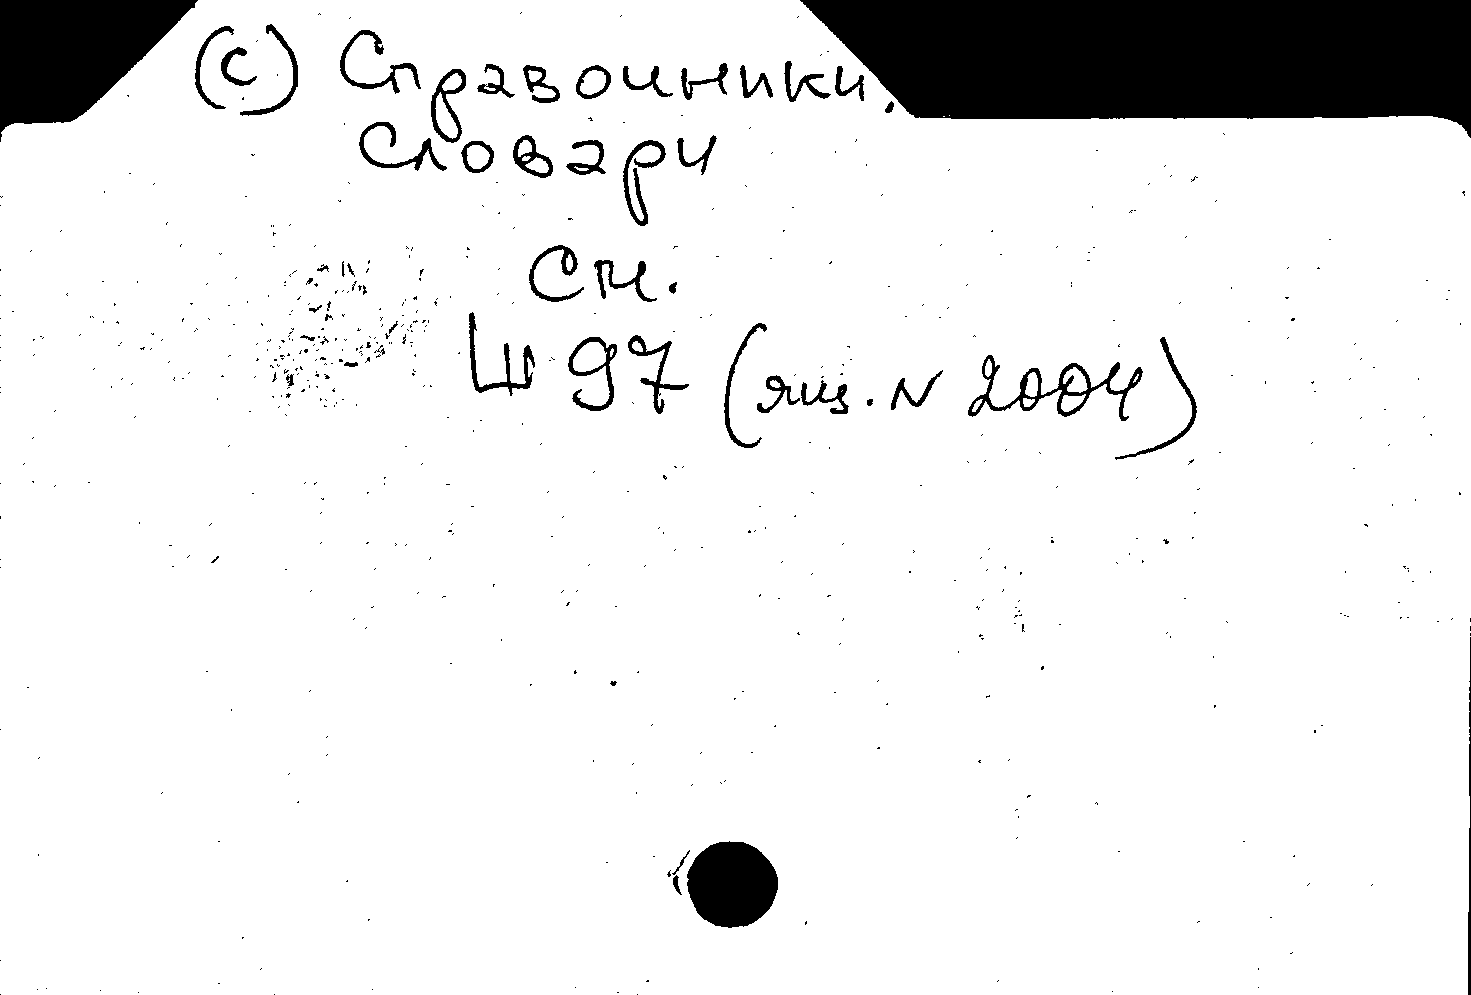 (с) Справочники.
Словари
См.
Ш 97 (ящ. N 2004)